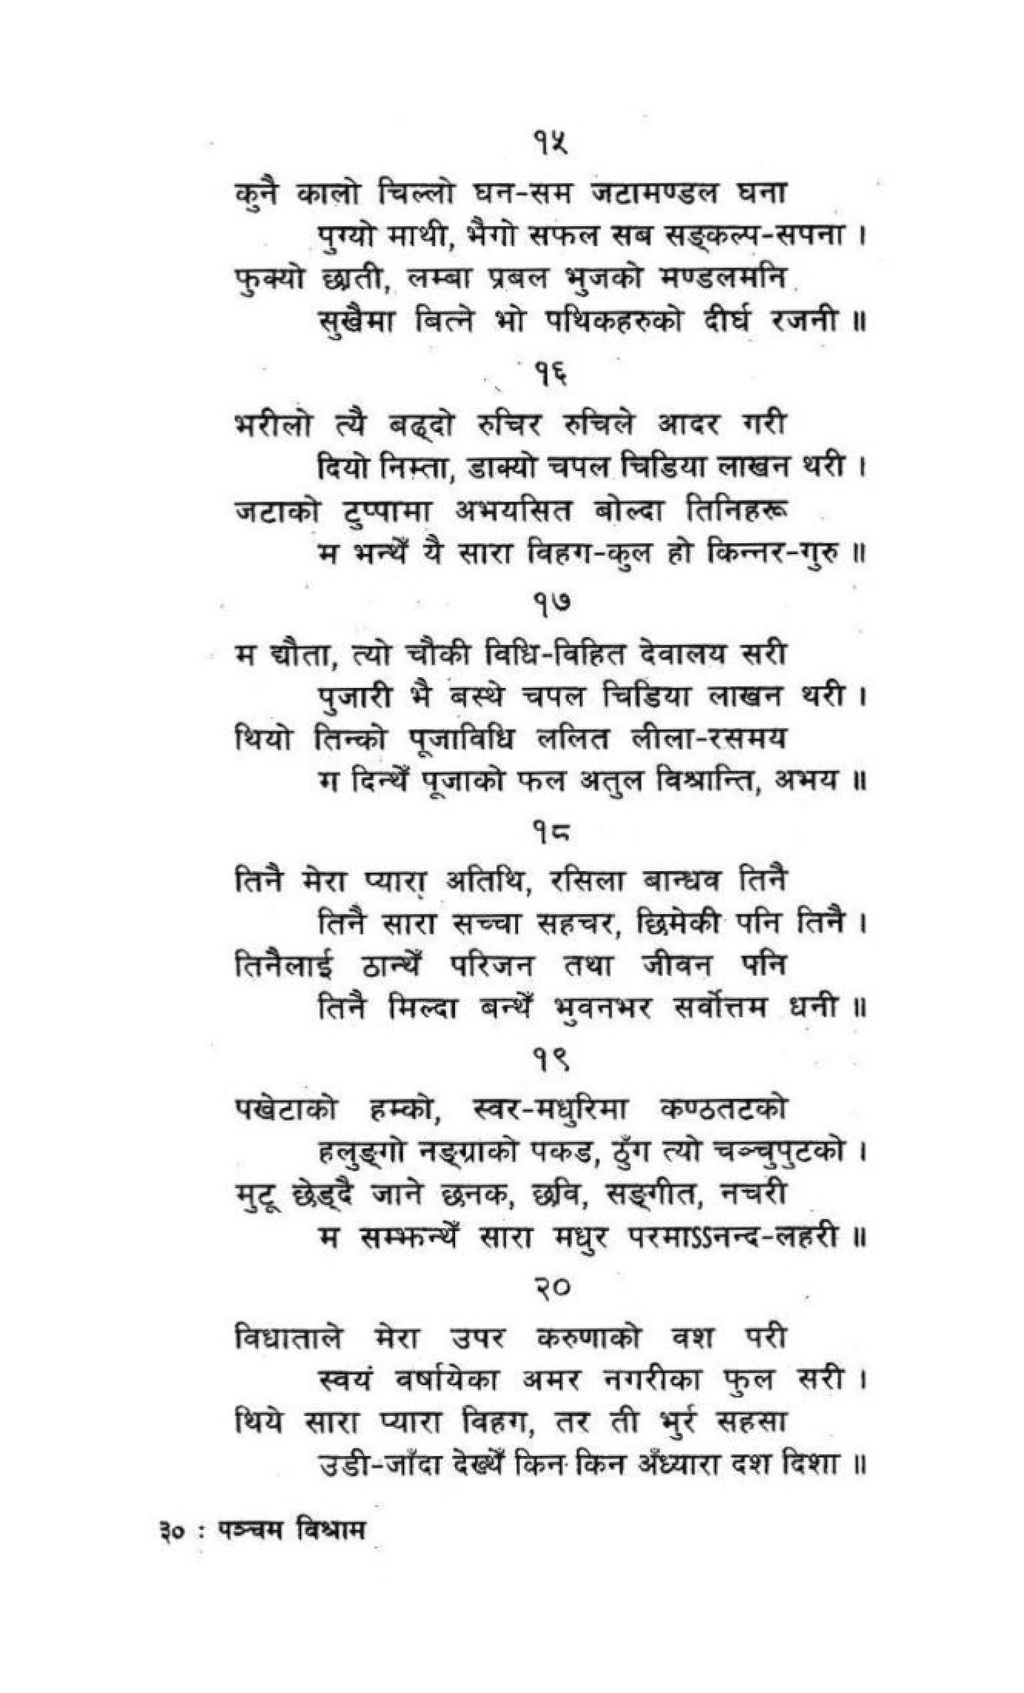 १५
कुनै कालो चिल्लो घन-सम जटामण्डल घना
पुग्यो माथी, भैगो सफल सब सङ्कल्प-सपना ।
फुक्यो छाती, लम्बा प्रबल भुजको मण्डलमनि
सुखैमा बित्ने भो पथिकहरुको दीर्घ रजनी ॥
१६
भरीलो त्यै बढ्दो रुचिर रुचिले आदर गरी
दियो निम्ता, डाक्यो चपल चिडिया लाखन थरी ।
जटाको टुप्पामा अभयसित बोल्दा तिनिहरू
म भन्थेँ यै सारा विहग-कुल हो किन्नर-गुरु ॥
१७
म द्यौता, त्यो चौकी विधि-विहित देवालय सरी
पुजारी भै बस्थे चपल चिडिया लाखन थरी ।
थियो तिन्को पूजाविधि ललित लीला-रसमय
म दिन्थेँ पूजाको फल अतुल विश्रान्ति, अभय ॥
१८
तिनै मेरा प्यारा अतिथि, रसिला बान्धव तिनै
तिनै सारा सच्चा सहचर, छिमेकी पनि तिनै ।
तिनैलाई ठान्थेँ परिजन तथा जीवन पनि
तिनै मिल्दा बन्थेँ भुवनभर सर्वोत्तम धनी ॥
१९
पखेटाको हम्को, स्वर-मधुरिमा कण्ठतटको
हलुङ्गो नङ्ग्राको पकड, ठुँग त्यो चञ्चुपुटको ।
मुटू छेड्दै जाने छनक, छवि, सङ्गीत, नचरी
म सम्झन्थेँ सारा मधुर परमाऽऽनन्द-लहरी ॥
२०
विधाताले मेरा उपर करुणाको वश परी
स्वयं वर्षायेका अमर नगरीका फुल सरी ।
थिये सारा प्यारा विहग, तर ती भुर्र सहसा
उडी-जाँदा देख्थेँ किन किन अँध्यारा दश दिशा ॥
३० : पञ्चम विश्राम